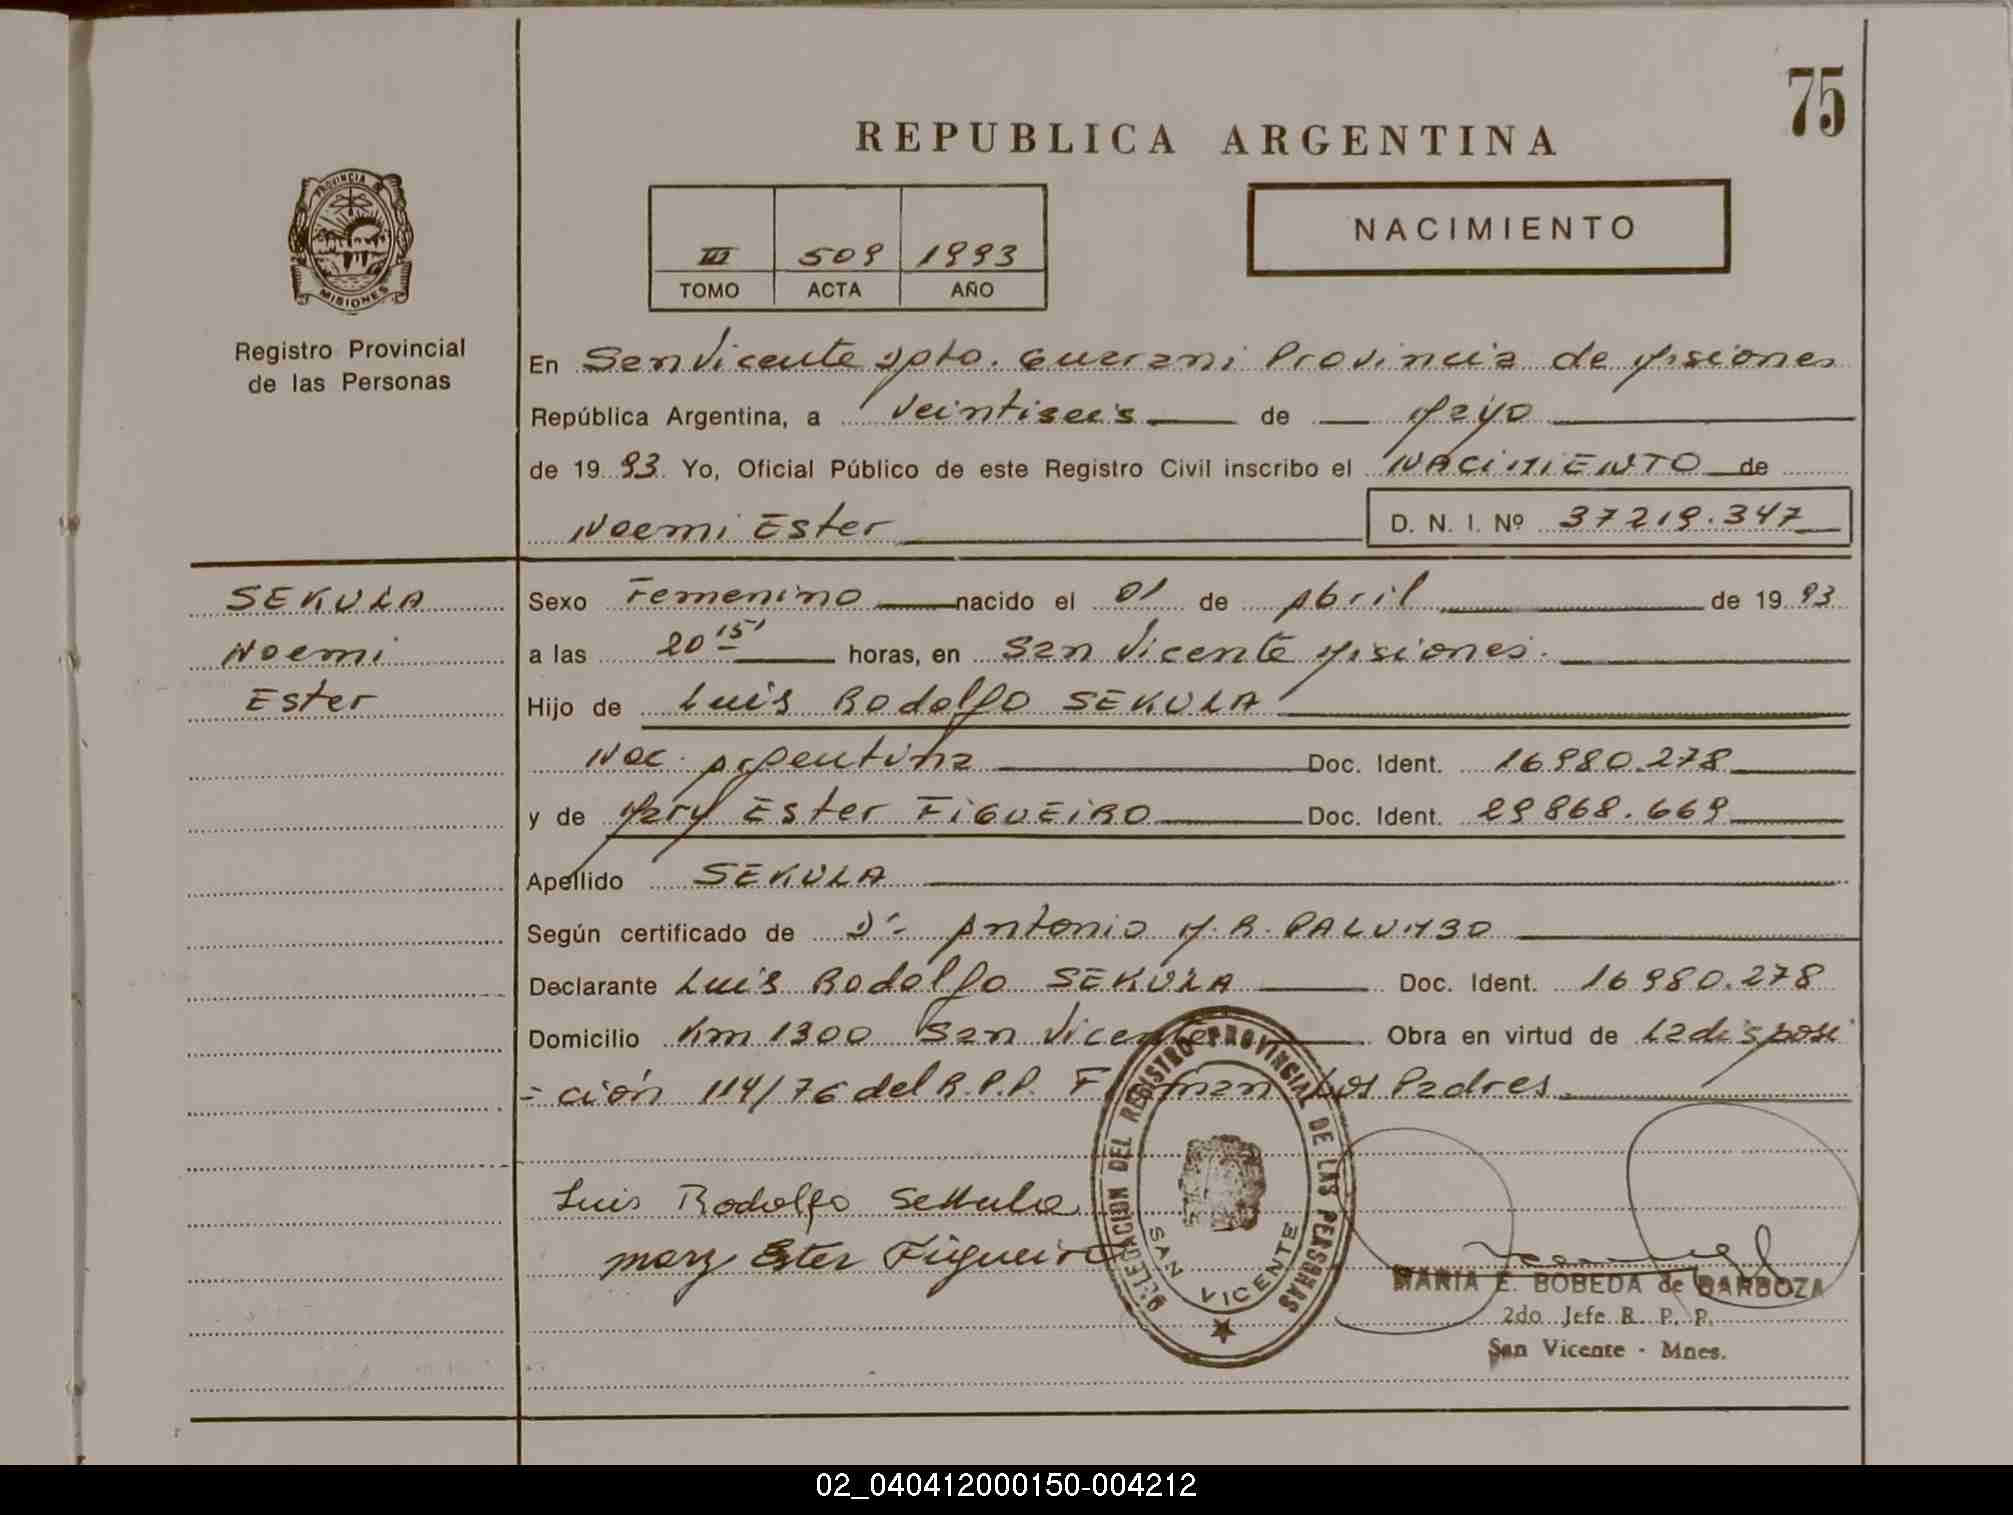 75
REPUBLICA ARGENTINA
PROVINCIA DE
MISIONES
Registro Provincial
de las Personas
III 509 1993
TOMO ACTA AÑO
NACIMIENTO
En San Vicente Dpto. Guarani Provincia de Misiones
República Argentina, a veintiseis de Mayo
de 19 93. Yo, Oficial Público de este Registro Civil inscribo el NACIMIENTO de
Noemi Ester D. N. I. Nº 37219.347
SEKULA
Noemi
Ester
Sexo Femenino nacido el 01 de Abril de 19 93
a las 20 15' horas, en San Vicente Misiones.
Hijo de Luis Rodolfo SEKULA
Nac. Argentina Doc. Ident. 16980.278
y de Mary Ester FIGUEIRO Doc. Ident. 29868.669
Apellido SEKULA
Según certificado de Dr. Antonio M. R. PALUMBO
Declarante Luis Rodolfo SEKULA Doc. Ident. 16980.278
Domicilio Km 1300 San Vicente Obra en virtud de La disposi
- ción 114/76 del R.P.P. Firman Los Padres.
Luis Rodolfo Sekula
mary Ester Figueiro
DELEGACION DEL REGISTRO PROVINCIAL DE LAS PERSONAS
SAN VICENTE
MARIA E. BOBEDA de BARBOZA
2do Jefe R. P. P.
San Vicente - Mnes.
02_040412000150-004212